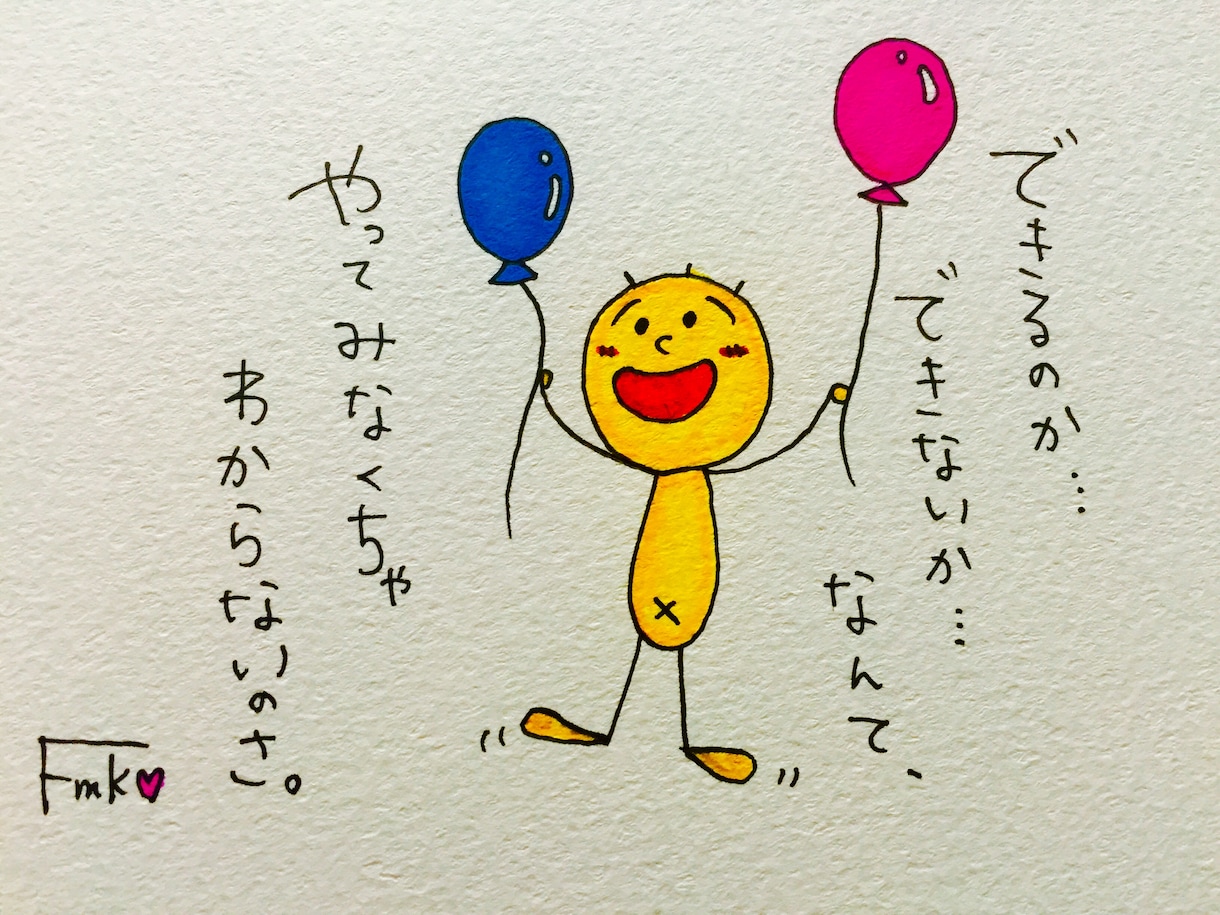 できるのか…
できないか…
なんて、
やってみなくちゃ
わからないのさ。
Fmk♥